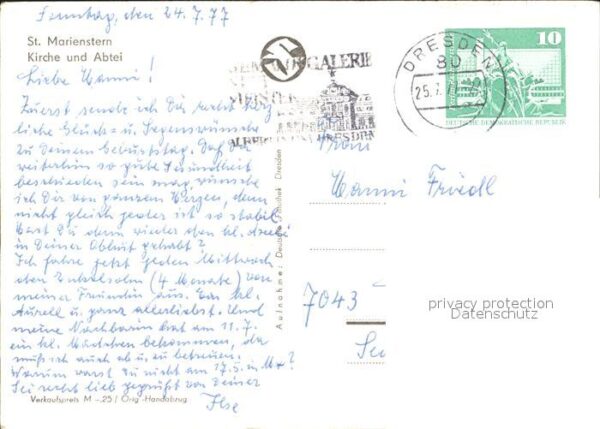 Sonntag, den 24.7.77
St. Marienstern
Kirche und Abtei
Liebe Hanni!
Zuerst sende ich Dir recht herz
liche Glück- u. Segenswünsche
zu Deinem Geburtstag. Daß Dir
weiterhin so gute Gesundheit
beschieden sein mag, wünsche
ich Dir von ganzem Herzen, denn
nicht gleich jeder ist so stabil.
Hast Du denn wieder den kl.
in Deiner Obhut gehabt?
Ich fahre jetzt jeden Mittwoch
den Enkelsohn (4 Monate) von
meiner Freundin aus. Ein kl.
u. ganz allerliebst. Und
meine Nachbarin hat am 11.7.
ein kl. Mädchen bekommen, da
muß ich auch ab u. zu betreuen.
Warum warst Du nicht am 17.5. in
Sei recht lieb gegrüßt von Deiner
Ilse
Verkaufspreis M -,25 / Orig.-Handabzug
Aufnahme: Deutsche Fotothek Dresden
GALERIE
ALTE
MEISTER
DRESDEN
DRESDEN
80
25.7.77
10
DEUTSCHE DEMOKRATISCHE REPUBLIK
Frau
Hanni Friedl
7043
privacy protection
Datenschutz